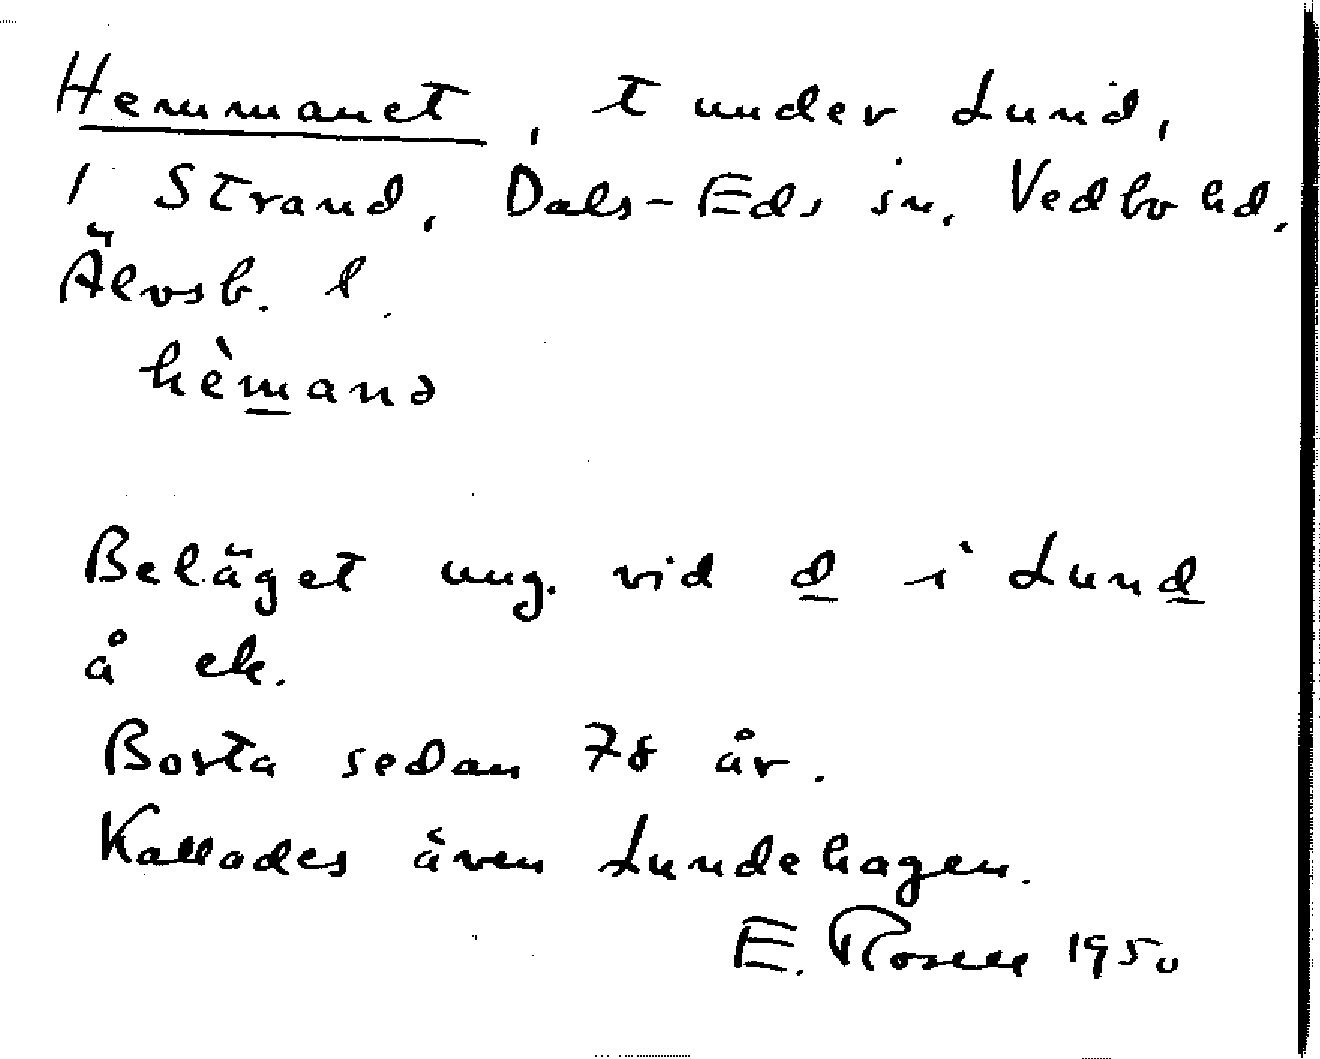 Hemmanet, t under Lund,
1 Strand, Dals-Eds sn, Vedbo hd.
Älvsb. l.
hèmanə
Beläget ung. vid d i Lund
å ek.
Borta sedan 78 år.
Kallades även Lundehagen.
E. Rosell 1950